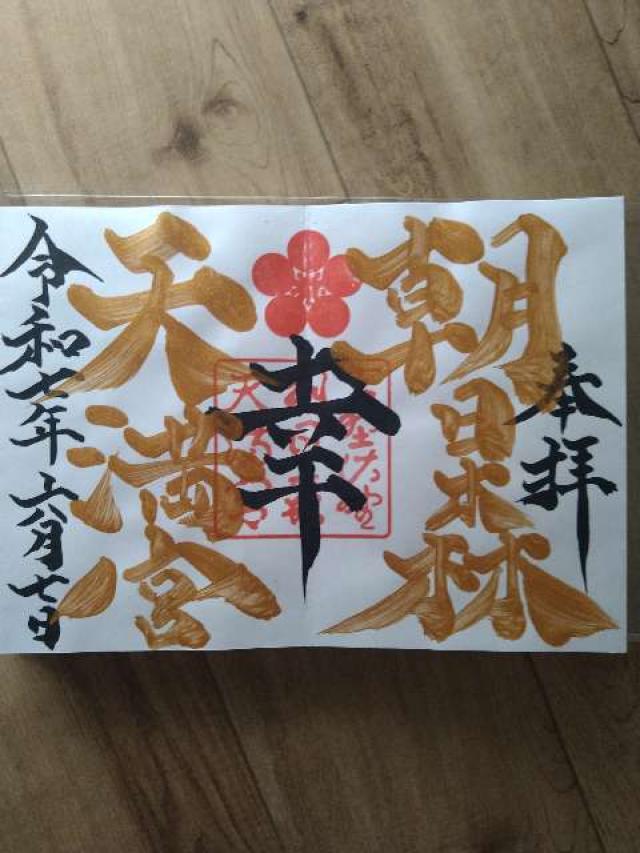 奉拝
朝日森
幸
天満宮
令和七年六月七日